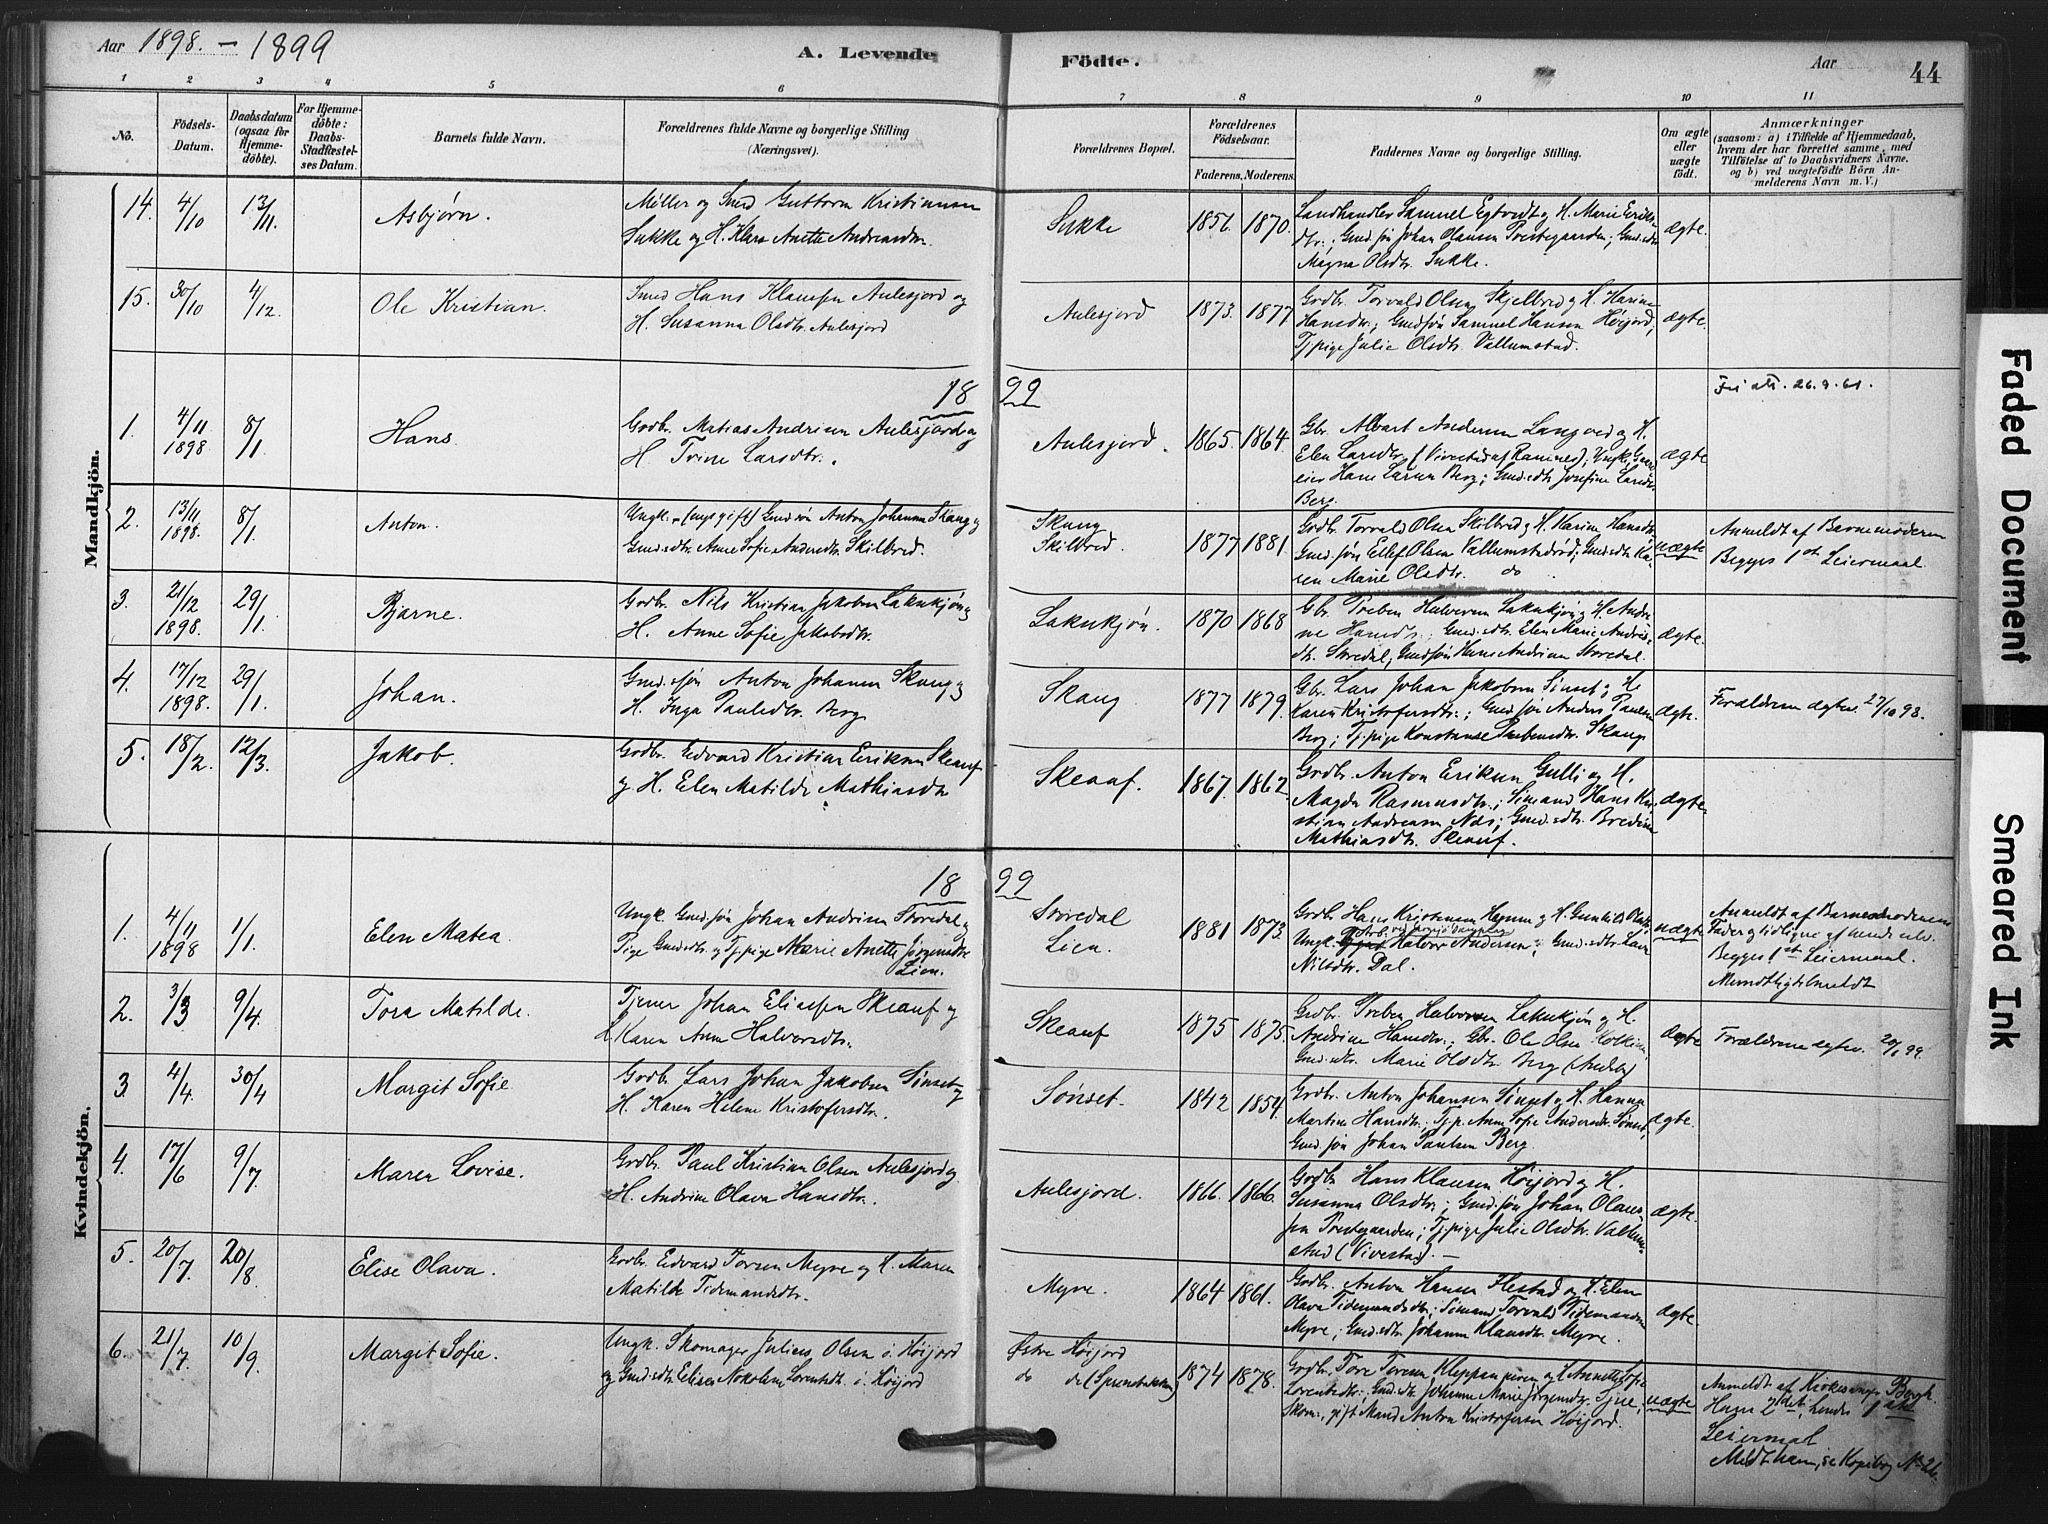 Aar 1898. - 1899
A. Levende Födte.
Aar
44
1 2 3 4 5 6 7 8 9 10 11
No.
Födsels-Datum.
Daabsdatum (ogsaa for Hjemmedöbte).
For Hjemmedöbte: Daabs-Stadfæstelses Datum.
Barnets fulde Navn.
Forældrenes fulde Navne og borgerlige Stilling (Næringsvei).
Forældrenes Bopæl.
Forældrenes Födselsaar.
Faderens. Moderens.
Faddernes Navne og borgerlige Stilling.
Om ægte eller uægte födt.
Anmærkninger
(saasom: a) i Tilfælde af Hjemmedaab, hvem der har forrettet samme, med Tilföielse af to Daabsvidners Navne. og b) ved uægtefödte Börn Anmelderens Navn m. V.)
Mandkjön.
14. 4/10 13/11 Asbjørn.
Møller og Smed Guttorm Kristiansen
Sukke og H. Klara Anette Andreasdtr.
Sukke 1851. 1870.
Landhandler Samuel Egtvedt og H. Marie Eriks
dtr.; Gmd.søn Johan Olausen Prestegaarden; Gmd.sdtr
Magna Olsdtr. Sukke.
ægte.
15. 30/10 4/12 Ole Kristian.
Smed Hans Klausen Aulesjord og
H. Susanna Olsdtr. Aulesjord
Aulesjord 1873. 1877
Grdbr. Torvald Olsen Skjelbred og H. Karine
Hansdtr.; Gmdsøn Samuel Hansen Høijord,
Tj.pige Julie Olsdtr. Vallumstad.
ægte.
18 99
Fri att. 26.9.61.
1. 4/11 1898 8/1 Hans.
Grdbr. Matias Andersen Aulesjord og
H. Trine Larsdtr.
Aulesjord. 1865. 1864.
Gbr. Albert Andersen Langved og H.
Elen Larsdtr. (Vivestad af Ramnes); Ungk. Gaard
eier Hans Larsen Berg; Gmd.sdtr. Josefine Larsdtr.
Berg.
ægte
2. 13/11 1898. 8/1 Anton.
Ungk. (nygift) Gmd.søn Anton Johansen Skaug og
Gmd.sdtr. Anne Sofie Andersdtr. Skilbred.
Skaug
Skilbred. 1877 1881.
Grdbr. Torvald Olsen Skilbred og H. Karine Hansdtr.
Gmd.søn Ellef Olsen Vallumstadrød; Gmd.sdtr. Ka-
ren Marie Olsdtr. do
uægte
Anmeldt af Barnemoderen
Begges 1ste Leiermaal
3. 21/12 1898. 29/1 Bjarne.
Grdbr. Nils Kristian Jakobsen Laknkjøn og
H. Anne Sofie Jakobsdtr.
Laknkjøn. 1870 1868
Gbr. Preben Halvorsen Laknkjøn og H. Andri
ne Hansdtr.; Gmd.sdtr. Elen Marie Andrés
dtr. Storedal; Gmdsøn Hans Andersen Storedal.
ægte.
4. 17/12 1898. 29/1 Johan.
Gmd.søn Anton Johansen Skaug og
H. Inga Paulsdtr. Berg
Skaug 1877 1879.
Gbr. Lars Johan Jakobsen Sønset og H.
Karen Kristofersdtr.; Gmd.søn Anders Paulsen
Berg; Tj.pige Konstanse Prebensdtr. Skaug
ægte.
Forældrene ægtev. 27/10 98.
5. 18/2. 12/3. Jakob.
Grdbr. Edvard Kristian Eriksen Skeauf
og H. Elen Matilde Mathiasdtr.
Skeauf. 1867. 1862.
Grdbr. Anton Eriksen Gulli og H.
Magda Rasmusdtr.; Sømand Hans Kri
stian Andreasen Nes; Gmd.sdtr. Bredine
Mathiasdtr. Skeauf.
ægte.
Kvindekjön.
18 99
1. 4/11 1898 1/1 Elen Matea.
Ungk. Gmd.søn Johan Andersen Storedal og
Pige Gmd.sdtr. og Tj.pige Marie Anette Jørgensdtr.
Lien.
Storedal
Lien. 1881 1873.
Grdbr. Hans Kristensen og H. Gunhild Olsdtr.
Ungk. Halvor Andersen; Gmd.sdtr.
Nilsdtr. Dal.
uægte
Anmeldt af Barnemoderen
Begges 1ste Leiermaal.
2. 3/3 9/4. Tora Matilde.
Tjener Johan Eliassen Skeauf og
H. Karen Anne Halvorsdtr.
Skeauf 1875 1875.
Grdbr. Preben Halvorsen Laknkjøn og H.
Andrine Hansdtr.; Gbr. Ole Olsen
Gmd.sdtr. Marie Olsdtr. Berg (Andebu)
ægte
Forældrene ægtev. 20/1 99.
3. 4/4. 30/4 Margit Sofie
Grdbr. Lars Johan Jakobsen Sønset og
H. Karen Helene Kristofersdtr.
Sønset. 1842 1854.
Grdbr. Anton Johansen Sønset og H. Hanna
Martine Hansdtr.; Tj.p. Anne Sofie Andersdtr. Sønset;
Gmd.søn Johan Paulsen Berg
ægte.
4. 17/6 9/7. Maren Lovise.
Grdbr. Paul Kristian Olsen Aulesjord og
H. Andrine Olava Hansdtr.
Aulesjord. 1866. 1866.
Grdbr. Hans Klausen Høijord og H.
Susanna Olsdtr.; Gmd.søn Johan Olaus-
sen Prestegaarden; Tj.pige Julie Olsdtr. Vallum-
stad (Vivestad).
ægte.
5. 20/7. 20/8 Elise Olava.
Grdbr. Edvard Torsen Myre og H. Maren
Matilde Tidemandsdtr.
Myre. 1864 1861.
Grdbr. Anton Hansen Flestad og H. Elen
Olava Tidemandsdtr.; Sømand Torvald Tidemandsen
Myre; Gmd.sdtr. Johanne Klausdtr. Myre.
ægte.
6. 21/7. 10/9. Margit Sofie.
Ungk. Skomager Julius Olsen i Høijord
og Gmd.sdtr. Elise Nikoline Lorentsdtr. i Høijord
Østre Høijord
do do 1874 1878.
Grdbr. Tore Torsen Kleppan øvre og H. Annette Sofie
Lorentsdtr.; Gmd.sdtr. Johanne Marie Jørgensdtr.
Skom., gift Mand Anton Kristofersen Høijord.
uægte
Anmeldt af Kirkesanger Bergh.
Hans 2det, hendes 1ste
Leiermaal
Medt ham, se Kopibog No 26.
Faded Document
Smeared Ink